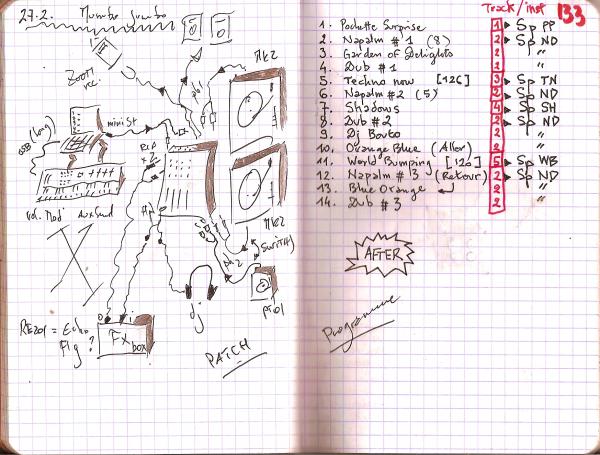 27.2. Mumbo Jumbo
Zoom
rec.
Mk2
mini St
USB (long)
RCA
x 2
vol. Mod Aux Send
Mk2
Switch
dj
PT01
RE201 = Echo
Fig ?
Fx box
PATCH
Track/inst 133
1. Pochette Surprise 1 ▶ Sp PP
2. Napalm # 1 (8) 2 ▶ Sp ND
3. Garden of Delights 2 "
4. Dub # 1 2 "
5. Techno now [126] 3 ▶ Sp TN
6. Napalm #2 (5) 2 ▶ Sp ND
7. Shadows 4 ▶ Sp SH
8. Dub # 2 2 ▶ Sp ND
9. Dj Bouto 2 "
10. Orange Blue (Aller) 2 "
11. World Bumping [120] 5 ▶ Sp WB
12. Napalm # 3 (Retour) 2 ▶ Sp ND
13. Blue Orange 2 "
14. Dub # 3 2 "
AFTER
Programme